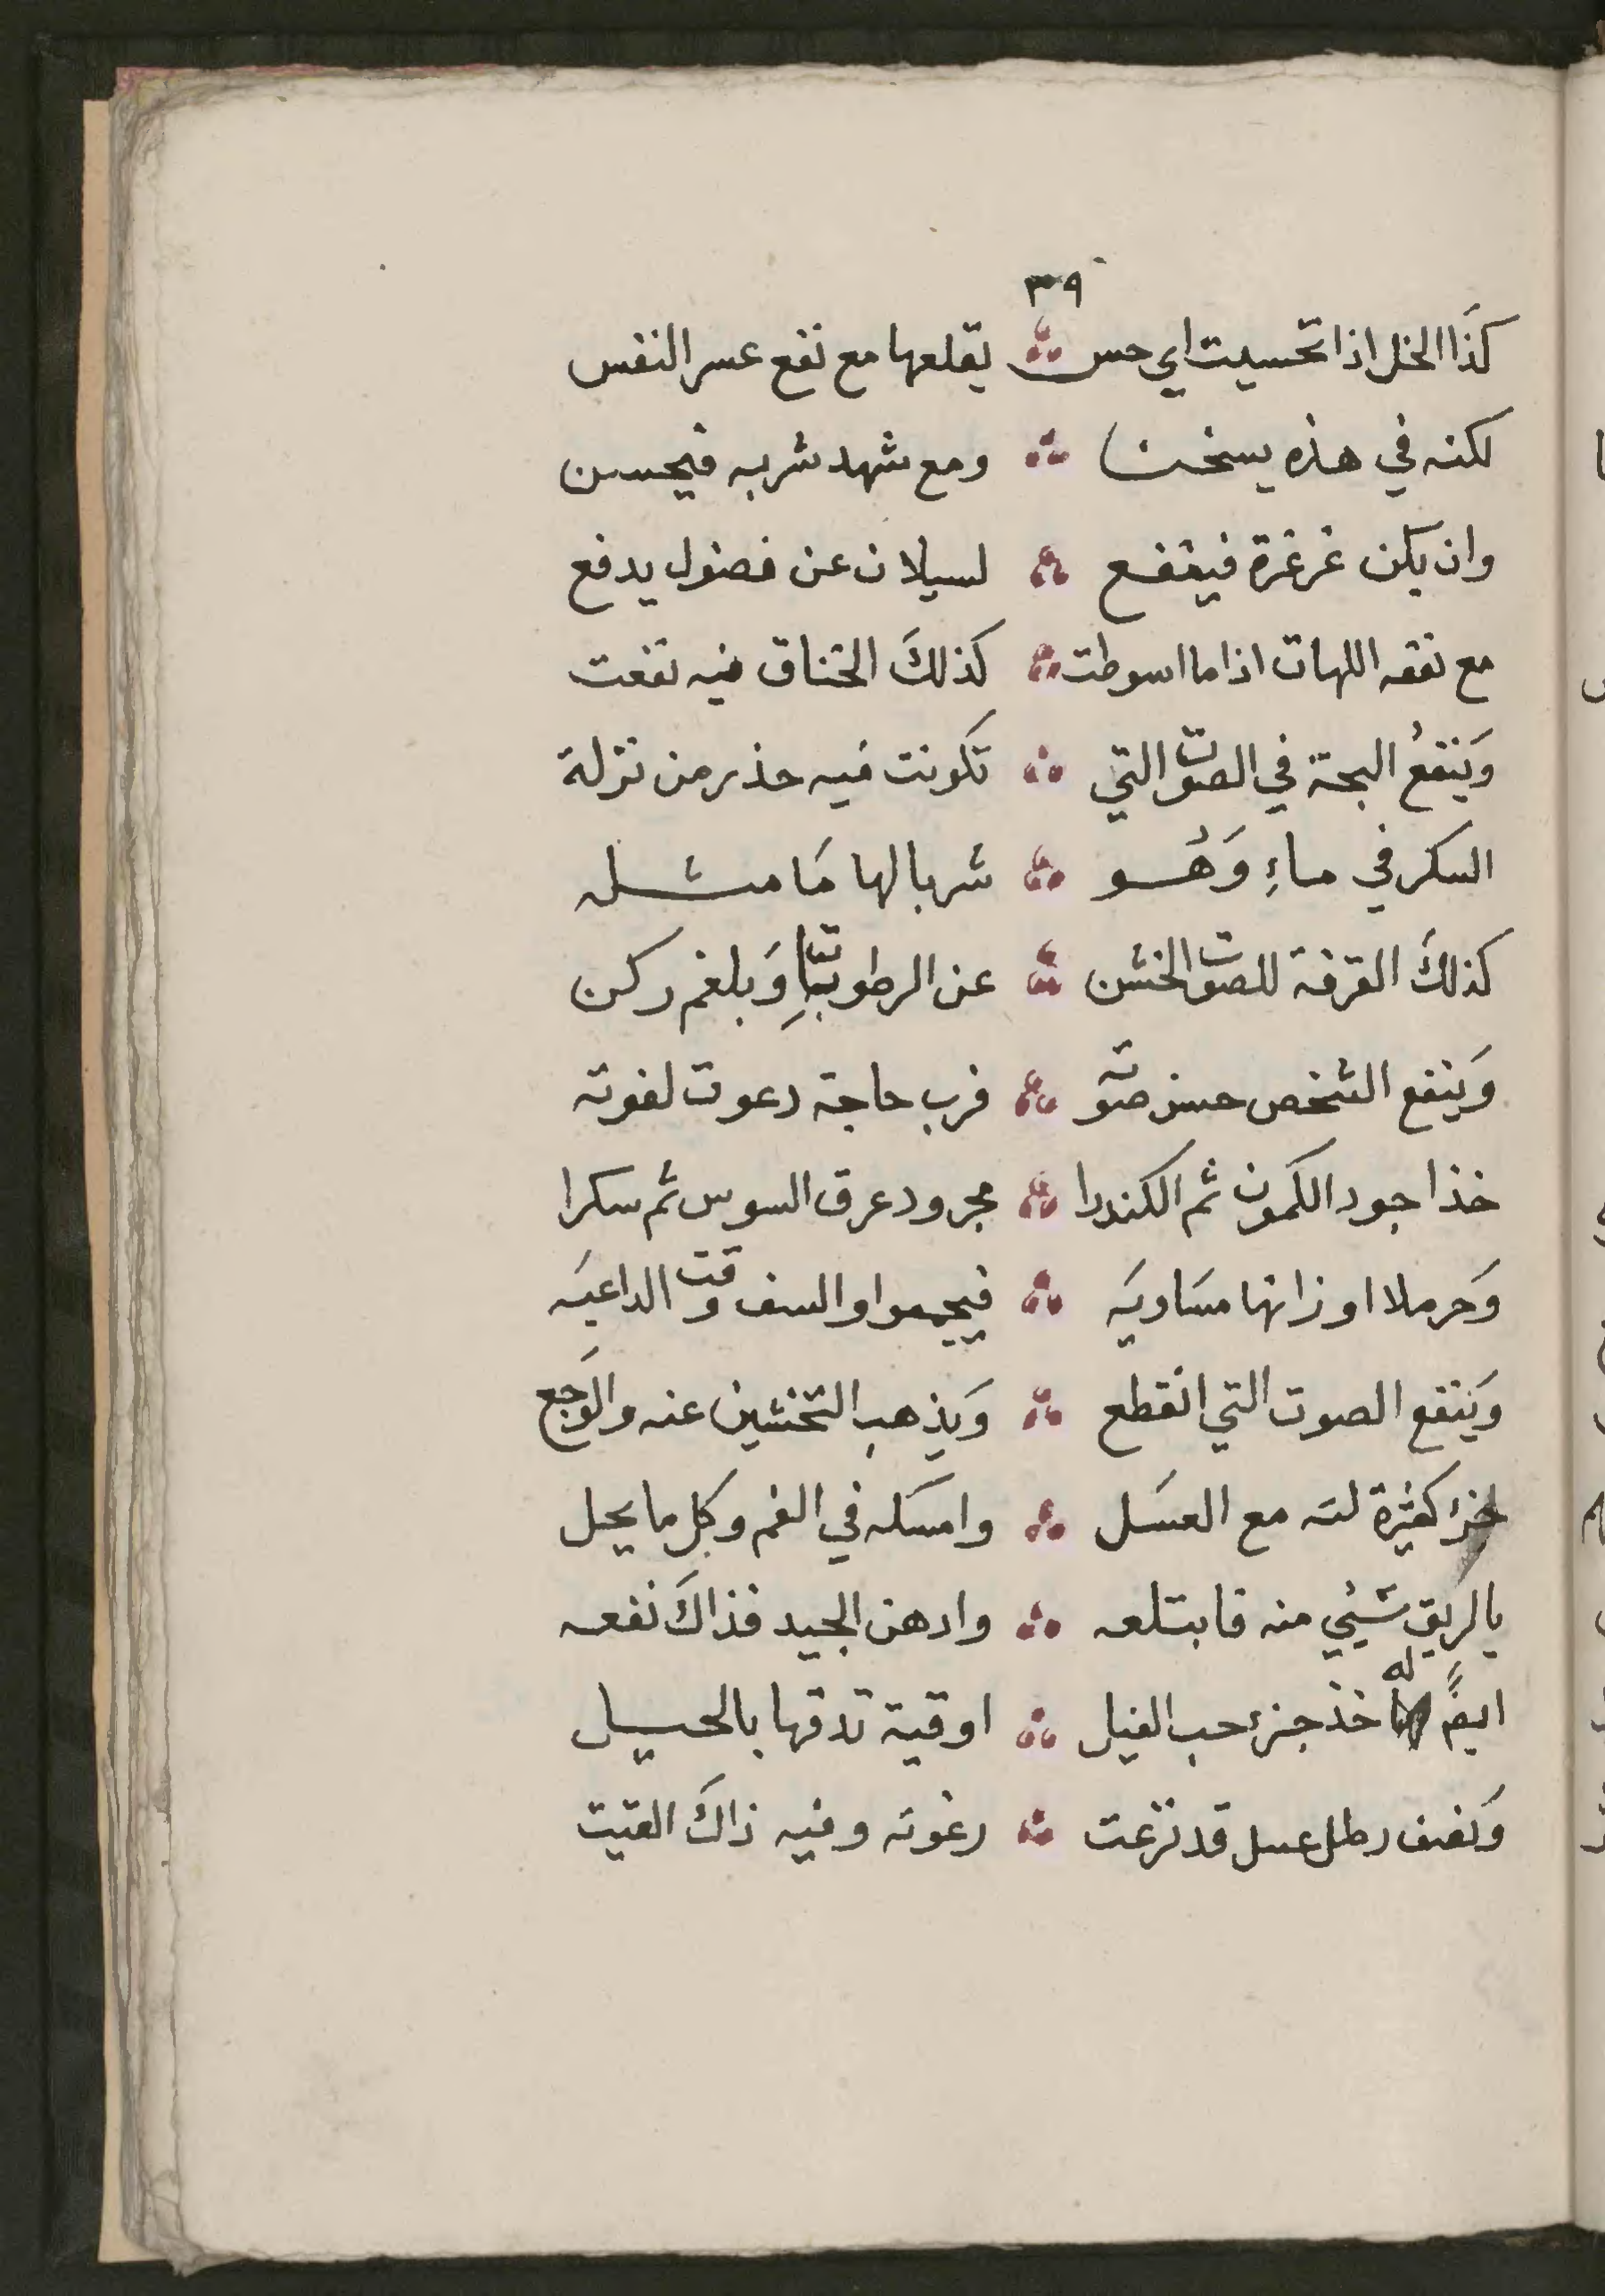 ٣٩
كذَا الخل اذا تحسيت اي حس يقلعها مع نفع عسر النفس
لكنه في هذه يسخنا ومع شهد شربه فيحسن
وان يكن غرغرة فينفع لسيلان عن فضول يدفع
مع نفعه اللهات اذا ما اسوطت كذلكَ الخناق فيه نفعت
وَينفعُ البحة في الصوت التي تكونت فيه حذر من نزلة
السكر في ماءِ وَهُو شربا لها مَا مثله
كذلكَ القرفة للصوت الخشن عن الرطوبتاِ وَبلغم ركن
وَينفع الشخص حسن صوته فرب حاجة دعوت لفوته
خذ اجود الكمون ثم الكندرا مجرود عرق السوس ثم سكرا
وَحرملا اوزانها مسَاويَه فيجمعوا والسف وقت الداعيَه
وَينفع الصوت التي انقطع وَيذهب التخشين عنه والوَجع
كثيرة لته مع العسَل وامسَكه في الفم وكل ما يحل
بالريق شيئي منه فابتلعه وادهن الجيد فذاكَ نفعه
ايضًا له خذ جزء حب الفيل اوقية تدقها بالحيل
وَنصف رطل عسل قد نزعت رغوته وفيه ذاكَ الفتيت